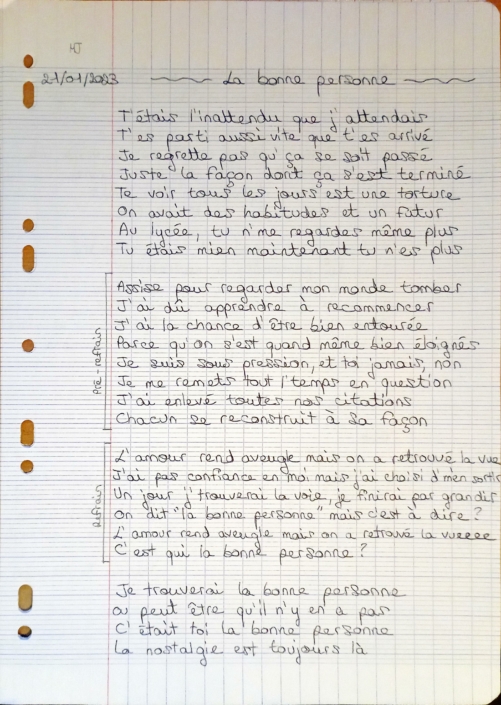 21/01/2023 La bonne personne
T'étais l'inattendu que j'attendais
T'es parti aussi vite que t'es arrivé
Je regrette pas qu'ça se soit passé
Juste la façon dont ça s'est terminé
Te voir tous les jours est une torture
On avait des habitudes et un futur
Au lycée, tu n'me regardes même plus
Tu étais mien maintenant tu n'es plus
Pré-refrain
Assise pour regarder mon monde tomber
J'ai dû apprendre à recommencer
J'ai la chance d'être bien entourée
Parce qu'on s'est quand même bien éloignés
Je suis sous pression, et toi jamais, non
Je me remets tout l'temps en question
J'ai enlevé toutes nos citations
Chacun se reconstruit à sa façon
Refrain
L'amour rend aveugle mais on a retrouvé la vue
J'ai pas confiance en moi mais j'ai choisi d'm'en sortir
Un jour j'trouverai la voie, je finirai par grandir
On dit "la bonne personne" mais c'est à dire?
L'amour rend aveugle mais on a retrouvé la vueeee
C'est qui la bonne personne?
Je trouverai la bonne personne
ou peut être qu'il n'y en a pas
C'était toi la bonne personne
La nostalgie est toujours là